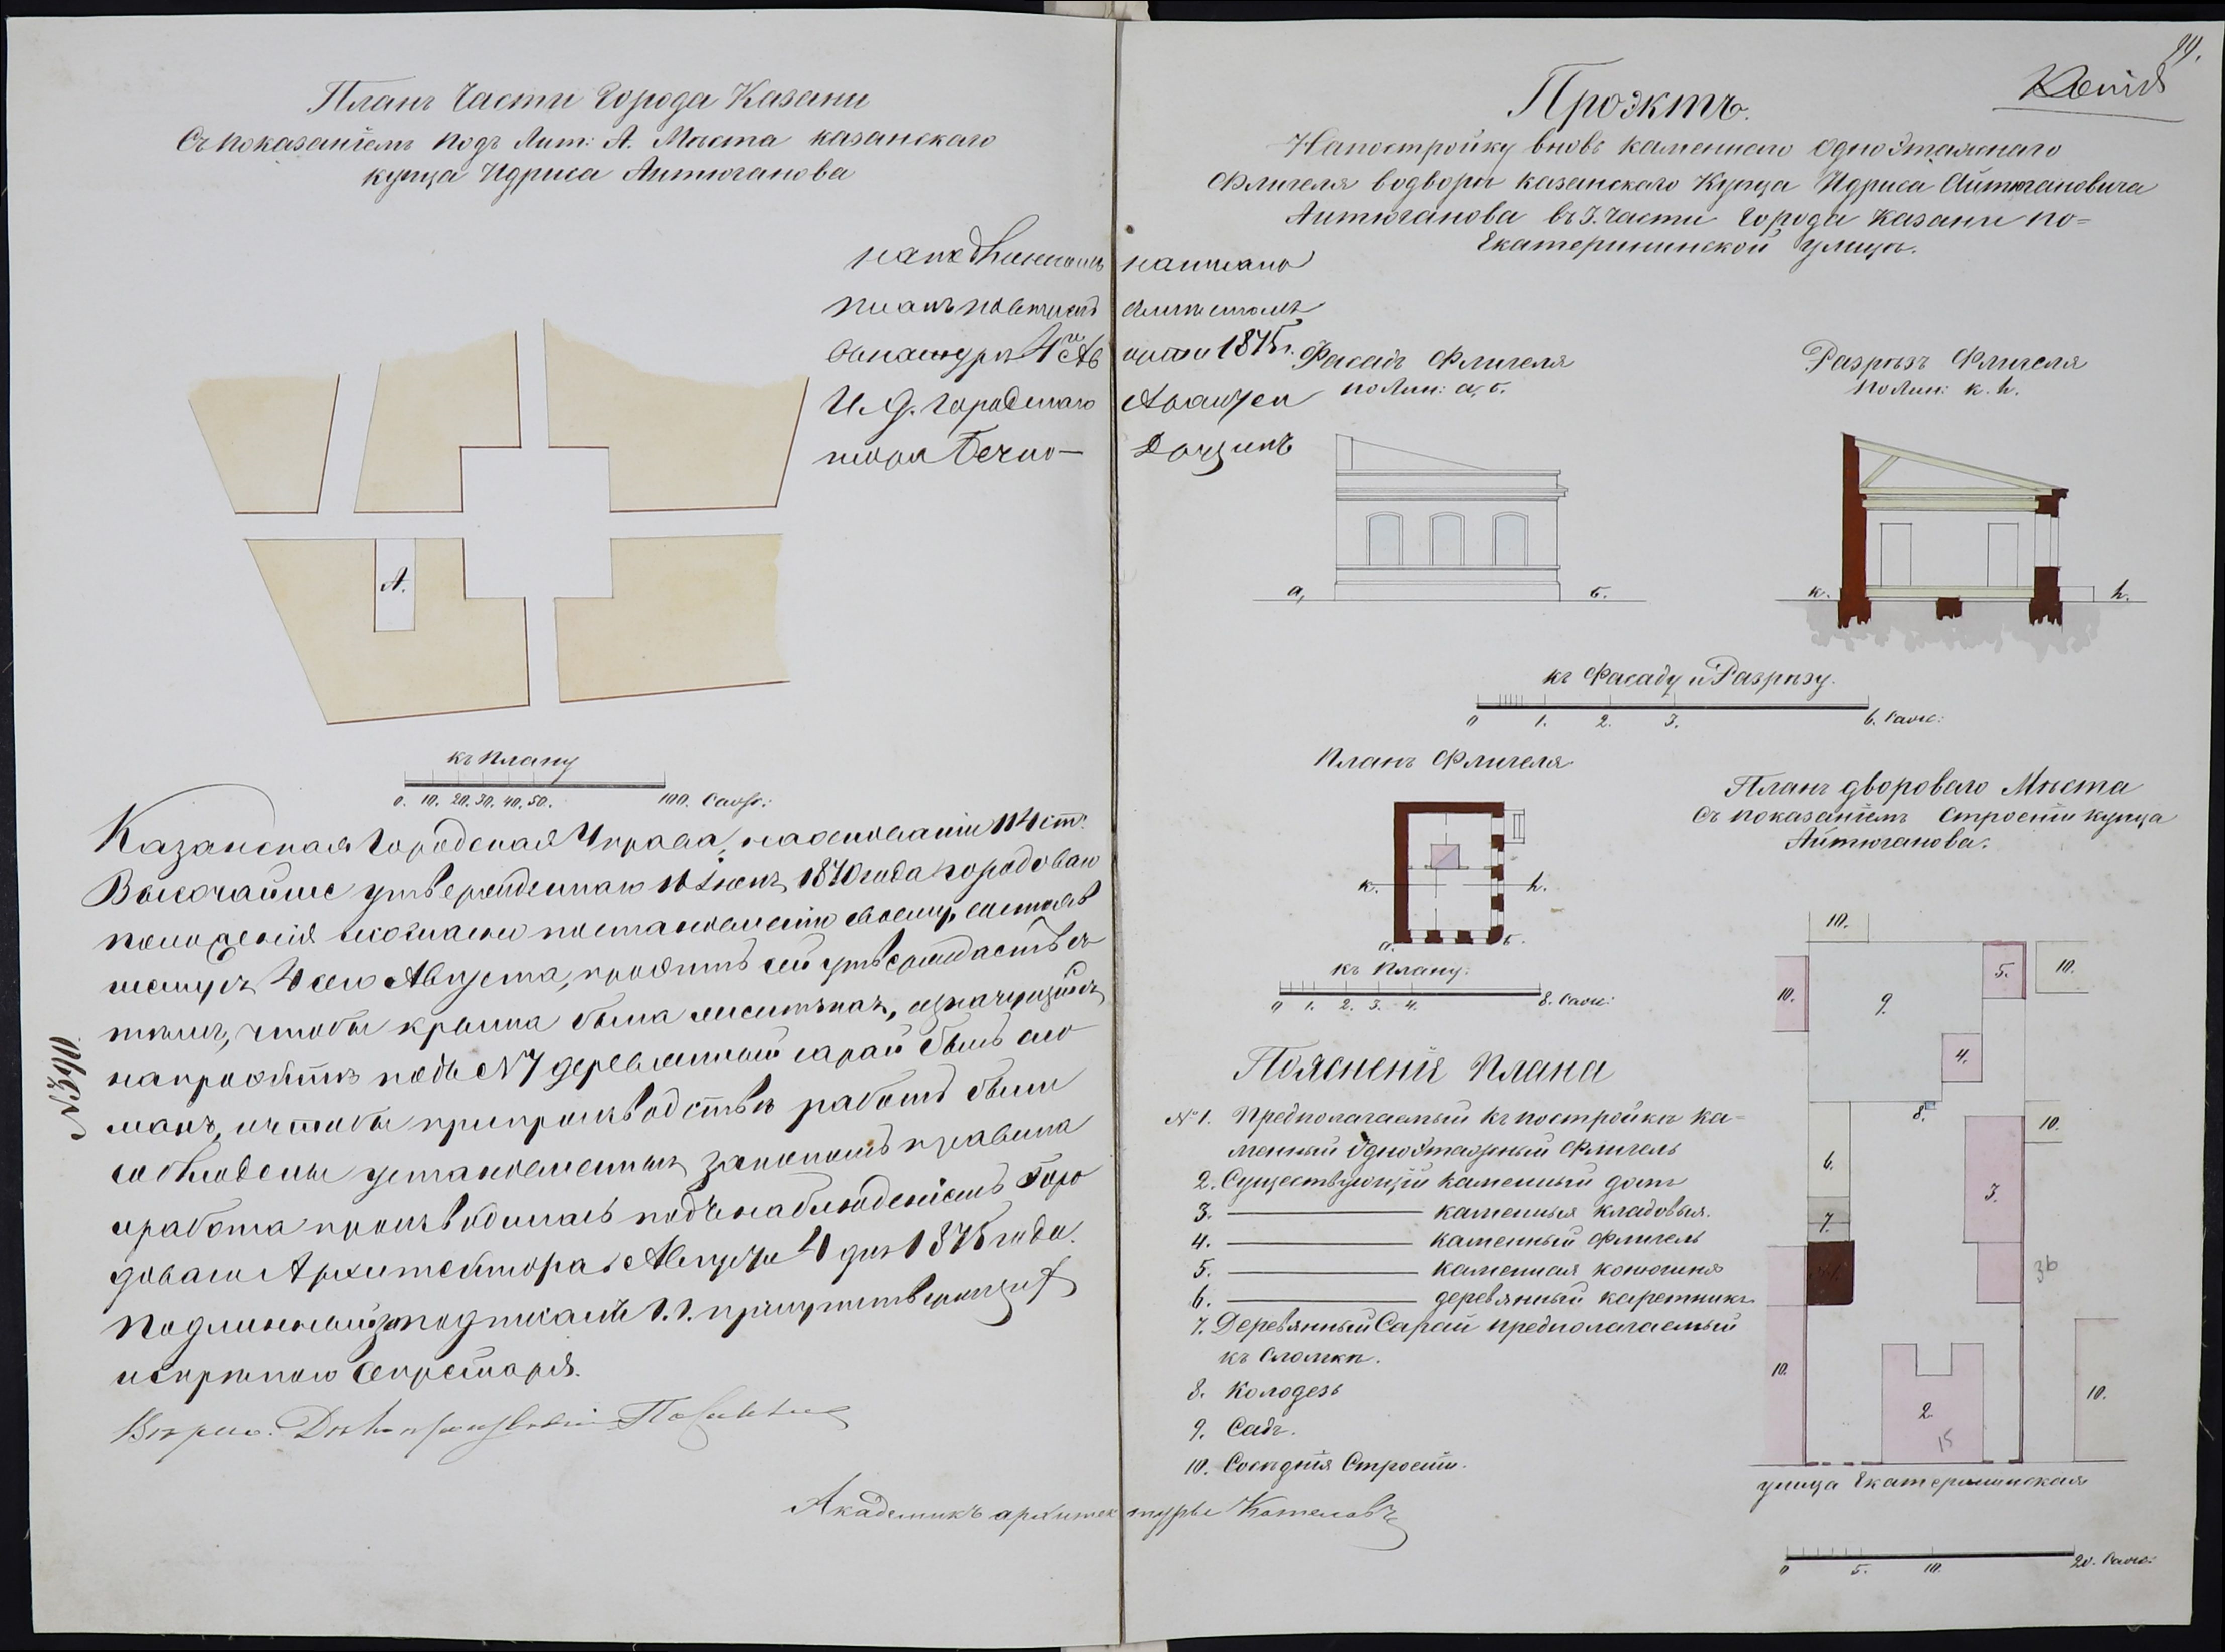 Планъ Части Города Казани
Съ показаніемъ подъ Лит: А. Мѣста казанскаго
купца Идриса Аитюганова
А.
къ Плану
0. 10. 20. 30. 40. 50. 100. Саж:
Казанская Городская Управа, на основаніи 114 ст.
Высочайше утвержденнаго 16 Іюня 1870 года городоваго
положенія и согласно постановленію своему, состояв
шемуся 4 сего Августа, проэктъ сей утверждаетъ съ
тѣмъ, чтобы крыша была желѣзная, значущійся
на проэктѣ подъ №7 деревянный сарай былъ сло
манъ, и чтобы при производствѣ работъ были
соблюдены установленныя закономъ правила
и работа производилась подъ наблюденіемъ Горо
доваго Архитектора. Августа 4 дня 1875 года.
Подлинный за подписомъ г.г. присутствующихъ
и скрѣпою Секретаря.
№390.
Вѣрно.
Академикъ архитектуры Котеловъ
Проэктъ.
Копія
На постройку вновь каменнаго одноэтажнаго
Флигеля во дворѣ казанскаго Купца Идриса Айтюгановича
Аитюганова въ 3. Части Города Казани по=
Екатерининской улицѣ.
На подлинномъ написано
планъ повѣряемъ
въ натурѣ 4го Августа 1875 г.
И. Д. Городскаго
Фасадъ Флигеля
по Лин: а, б.
Разрѣзъ Флигеля
по Лин: к. h.
а, б.
к. h.
къ Фасаду и Разрѣзу.
0 1. 2. 3. 6. Саж:
Планъ Флигеля
к. h.
а. б.
къ Плану:
0 1. 2. 3. 4. 8. Саж:
Планъ двороваго Мѣста
Съ показаніемъ Строеній купца
Айтюганова.
10.
10. 9. 5. 10.
4.
8. 10.
6. 3.
7.
36
10. 2. 10.
15
улица Екатерининская
0 5. 10. 20. Саж:
Поясненіе Плана
№1. Предполагаемый къ постройкѣ ка=
менный одноэтажный Флигель
2. Существующій каменный домъ
3. ——— каменныя кладовыя.
4. ——— каменный Флигель
5. ——— каменная конюшня
6. ——— деревянный каретникъ
7. Деревянный Сарай предполагаемый
къ Сломкѣ.
8. Колодезь
9. Садъ.
10. Сосѣднія Строеніи.